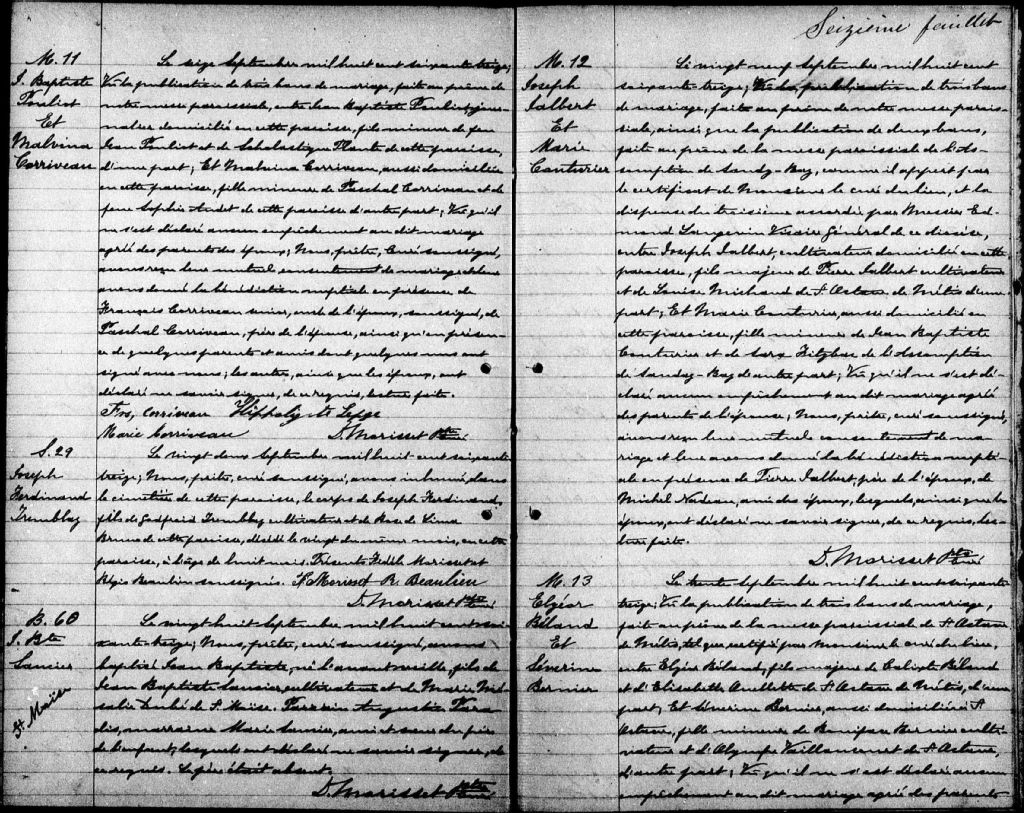 M. 11
J. Baptiste
Pouliot
Et
Malvina
Corriveau
Le seize Septembre mil huit cent soixante treize;
Vu la publication de trois bans de mariage, faite au prône de
notre messe paroissiale, entre Jean Baptiste Pouliot, jour-
nalier domicilié en cette paroisse, fils mineur de feu
Jean Pouliot et de Scholastique Plante de cette paroisse,
d'une part; Et Malvina Corriveau, aussi domiciliée
en cette paroisse, fille mineure de Paschal Corriveau et de
feue Sophie Audet de cette paroisse d'autre part; Vu qu'il
ne s'est déclaré aucun empêchement au dit mariage
après des parents des époux; Nous, prêtre, Curé soussigné,
avons reçu leur mutuel consentement de mariage et leur
avons donné la bénédiction nuptiale en présence de
François Corriveau, oncle de l'époux, soussigné, de
Paschal Corriveau, père de l'épouse, ainsi qu'en présen-
ce de quelques parents et amis dont quelques uns ont
signé avec nous; les autres, ainsi que les époux, ont
déclaré ne savoir signer, de ce requis, lecture faite.
Frs, Corriveau Hippolyte Lepge
Marie Corriveau D. Morisset Ptre
S. 29
Joseph
Ferdinand
Tremblay
Le vingt deux Septembre mil huit cent soixante
treize; Nous, prêtre, curé soussigné, avons inhumé dans
le cimetière de cette paroisse, le corps de Joseph Ferdinand,
fils de Godfroid Tremblay cultivateur et de Rose de Lima
Brune de cette paroisse, décédé le vingt du même mois, en cette
paroisse, à l'âge de huit mois. Présents Fidèle Morisset et
Régis Beaulieu soussignés. F. Morisset R. Beaulieu
D. Morisset Ptre
B. 60
J. Bte
Lausier
St Moïse
Le vingt huit Septembre mil huit cent soi-
xante-treize; Nous, prêtre, curé soussigné, avons
baptisé Jean Baptiste, né l'avant veille, fils de
Jean Baptiste Lausier, cultivateur et de Marie
Dubé de St Moïse. Parrain Augustin Para-
dis, marraine Marie Lausier, ami et sœur du père
de l'enfant, lesquels ont déclaré ne savoir signer, de
ce requis. Le père était absent.
D. Morisset Ptre
Seizième feuillet
M. 12
Joseph
Jalbert
Et
Marie
Couturier
Le vingt neuf Septembre mil huit cent
soixante treize; Vu la publication de trois bans
de mariage, faite au prône de notre messe parois-
siale, ainsi que la publication de deux bans,
faite au prône de la messe paroissiale de l'As-
somption de Sandy-Bay, comme il appert par
le certificat de Monsieur le curé du lieu, et la
dispense du troisième accordée par Messire Ed-
mond Langevin Vicaire Général de ce diocèse,
entre Joseph Jalbert, cultivateur domicilié en cette
paroisse, fils majeur de Pierre Jalbert cultivateur
et de Louise Michaud de St Octave de Métis d'une
part; Et Marie Couturier, aussi domiciliée en
cette paroisse, fille mineure de Jean Baptiste
Couturier et de Sara Fitzback de l'Assomption
de Sandy-Bay d'autre part; Vu qu'il ne s'est dé-
claré aucun empêchement au dit mariage après
des parents de l'épouse; Nous, prêtre, curé soussigné,
avons reçu leur mutuel consentement de ma-
riage et leur avons donné la bénédiction nupti-
ale en présence de Pierre Jalbert, père de l'époux, de
Michel Nadeau, ami des époux, lesquels, ainsi que les
époux, ont déclaré ne savoir signer, de ce requis, lec-
ture faite.
D. Morisset Ptre
M. 13
Elzéar
Béland
Et
Séverine
Bernier
Le trente Septembre mil huit cent soixante
treize; Vu la publication de trois bans de mariage,
faite au prône de la messe paroissiale de St Octave
de Métis, tel que certifié par Monsieur le curé du lieu,
entre Elzéar Béland, fils majeur de Calixte Béland
et d'Elisabeth Ouellette de St Octave de Métis, d'une
part; Et Séverine Bernier, aussi domiciliée à St
Octave, fille mineure de Boniface Bernier culti-
vateur et d'Olympe Vaillancourt de St Octave,
d'autre part; Vu qu'il ne s'est déclaré aucun
empêchement au dit mariage après des parents